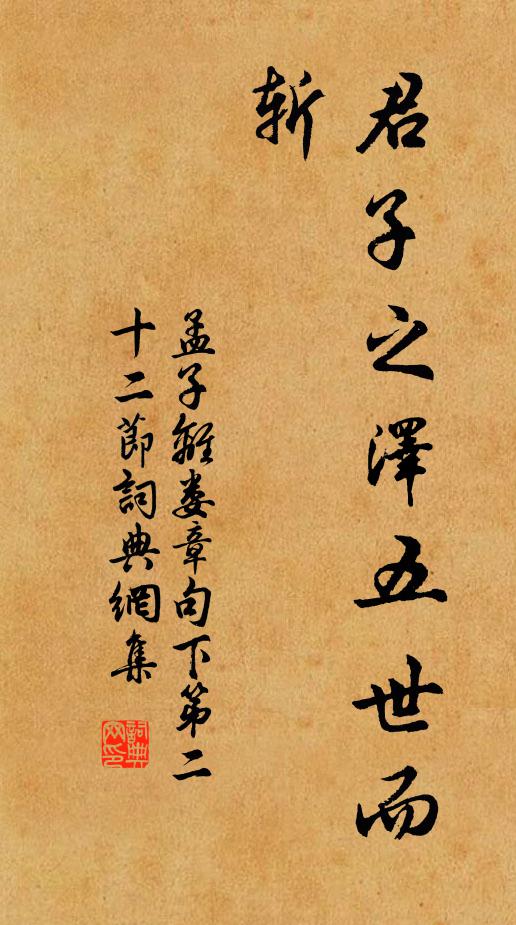 君子之澤五世而
斬
孟子離婁章句下第二
十二節詞典網集
詞典
网印